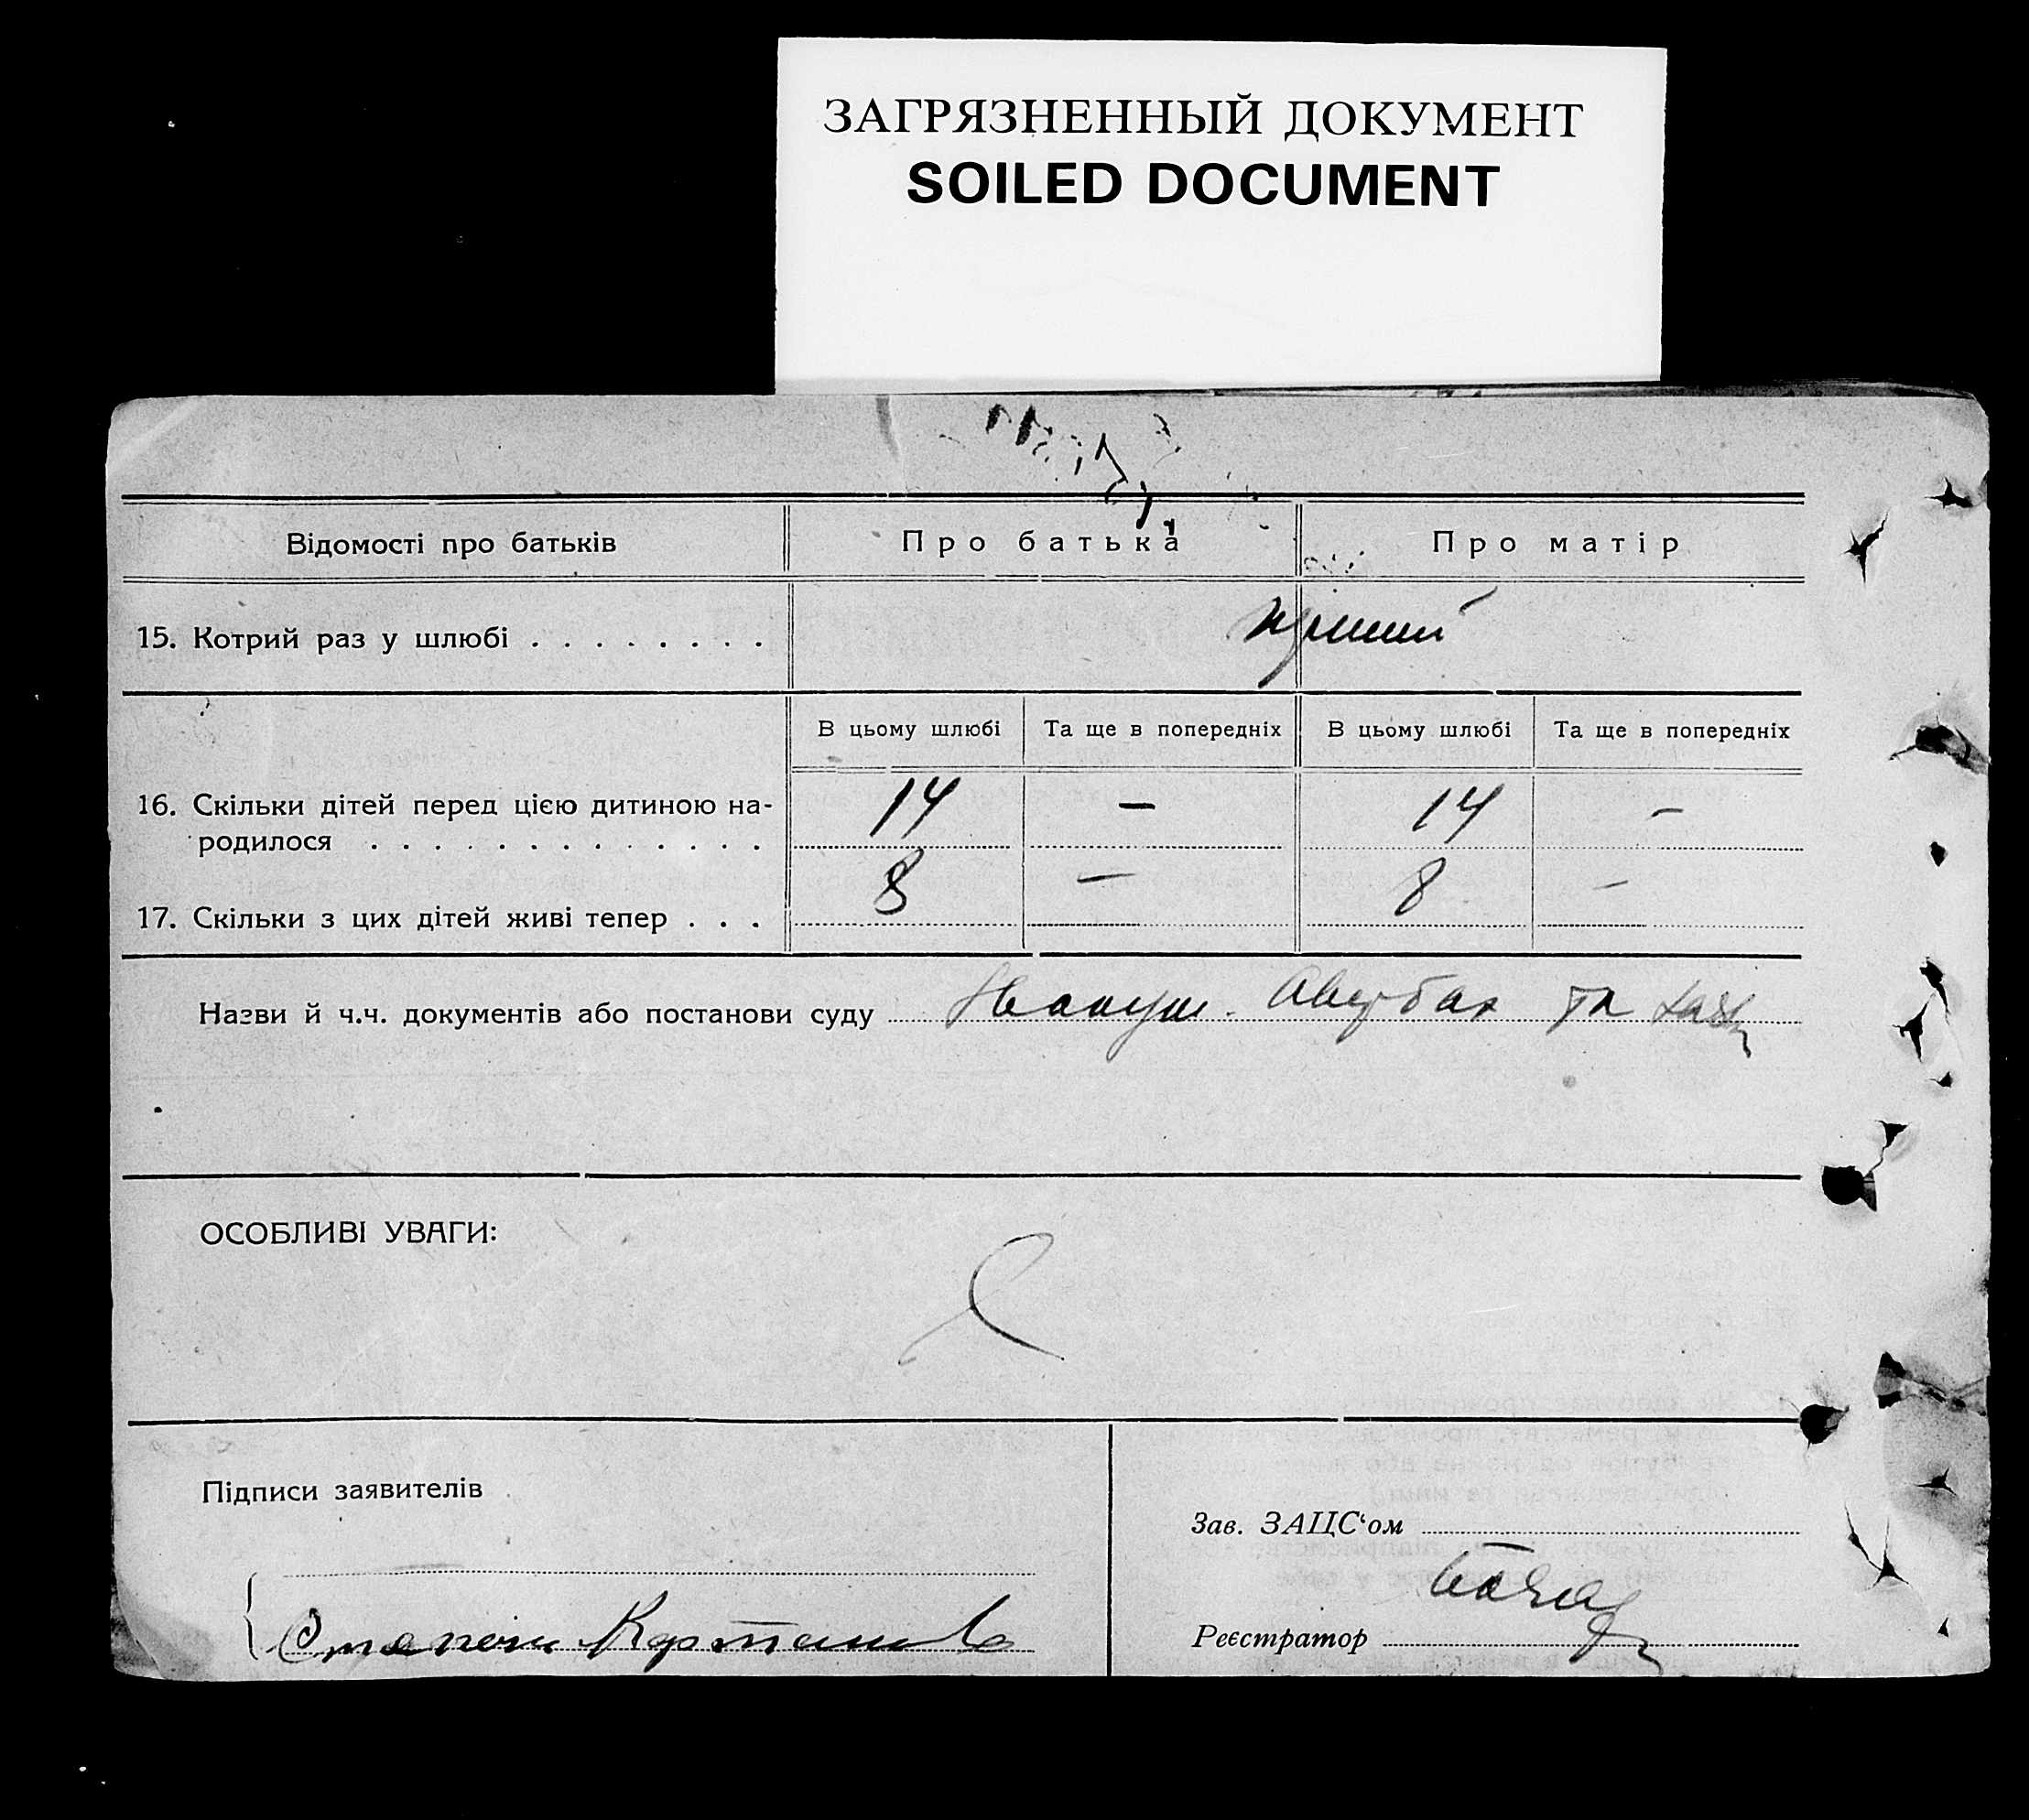 ЗАГРЯЗНЕННЫЙ ДОКУМЕНТ
SOILED DOCUMENT
Відомості про батьків
Про батька
Про матір
15. Котрий раз у шлюбі . . . . . . . .
В цьому шлюбі
Та ще в попередніх
В цьому шлюбі
Та ще в попередніх
16. Скільки дітей перед цією дитиною на-
родилося . . . . . . . . . . . . .
14 — 14 —
17. Скільки з цих дітей живі тепер . . .
8 — 8 —
Назви й ч.ч. документів або постанови суду
та
ОСОБЛИВІ УВАГИ:
Підписи заявителів
Зав. ЗАЦС‘ом
Реєстратор